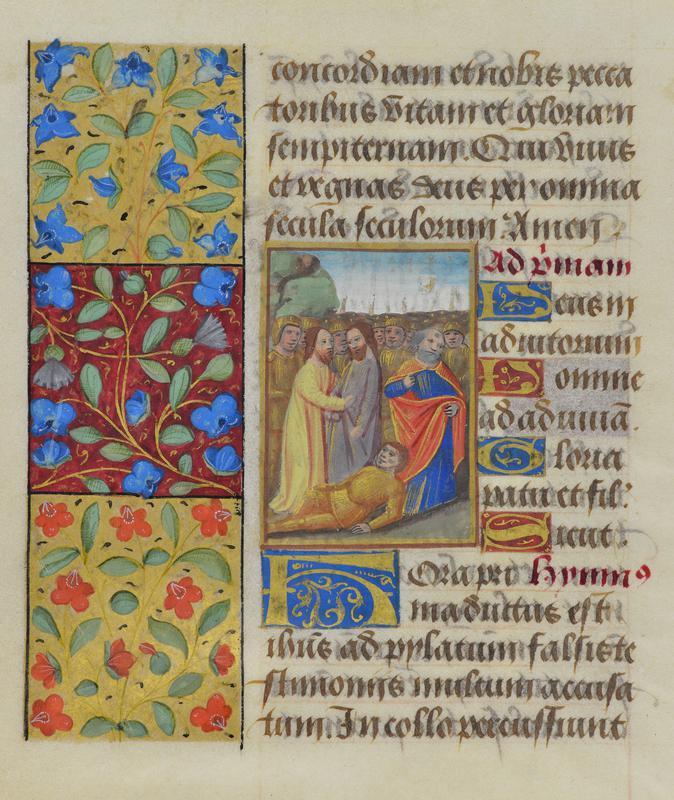 concordiam et nobis pecca
toribus vitam et gloriam
sempiternam. Qui vivis
et regnas deus per omnia
secula seculorum. Amen.
Ad primam
Deus in
adiutorium
Domine
ad adiuvā.
Gloria
patri et fil:
Sicut:
Hora pri Hymnꝰ
ma ductus est
ihūs ad pylatum falsis te
stimoniis multum accusa
tum. In collo percussiunt